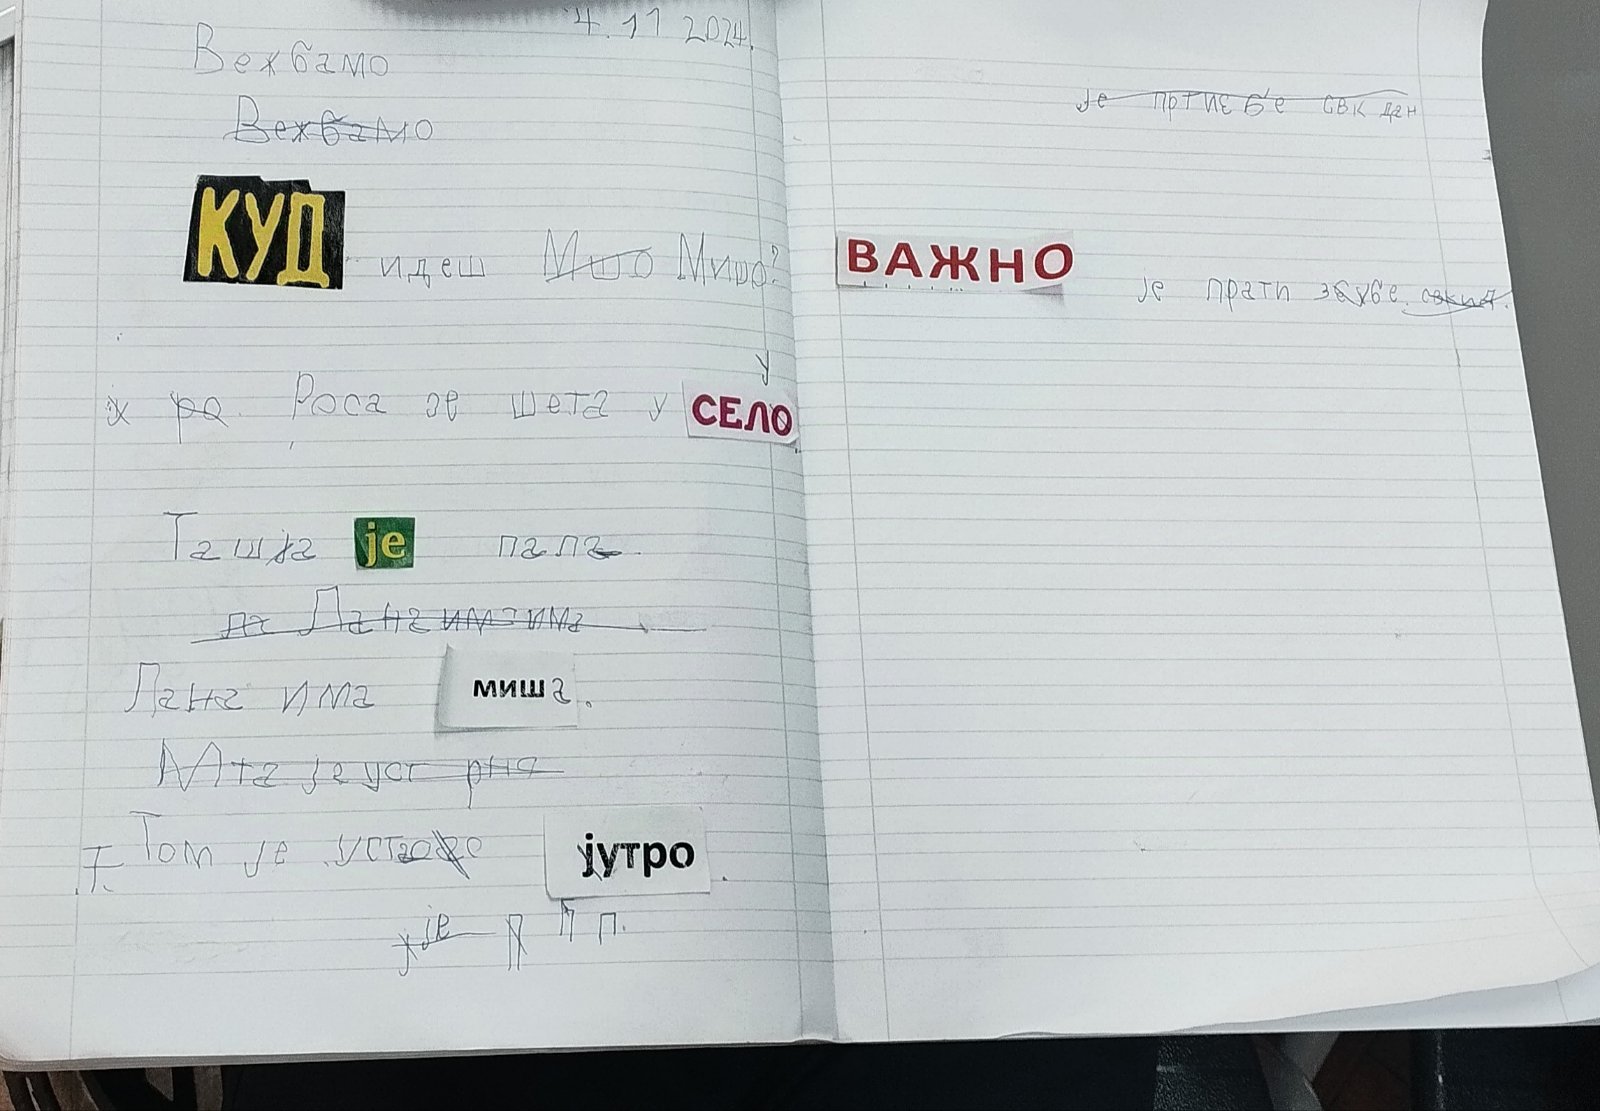 4. 11 2024.
Вехбамо
Вехбамо
КУД идеш Мшо Мишо?
х ро. Роса се шета у СЕЛО
у
Ташја је пала.
ла Лана има има
Лана има миша.
Мта је уст рна
Т. Том је устао јутро.
је п п п.
је пртиє бе свк дан
ВАЖНО је прати зубе.